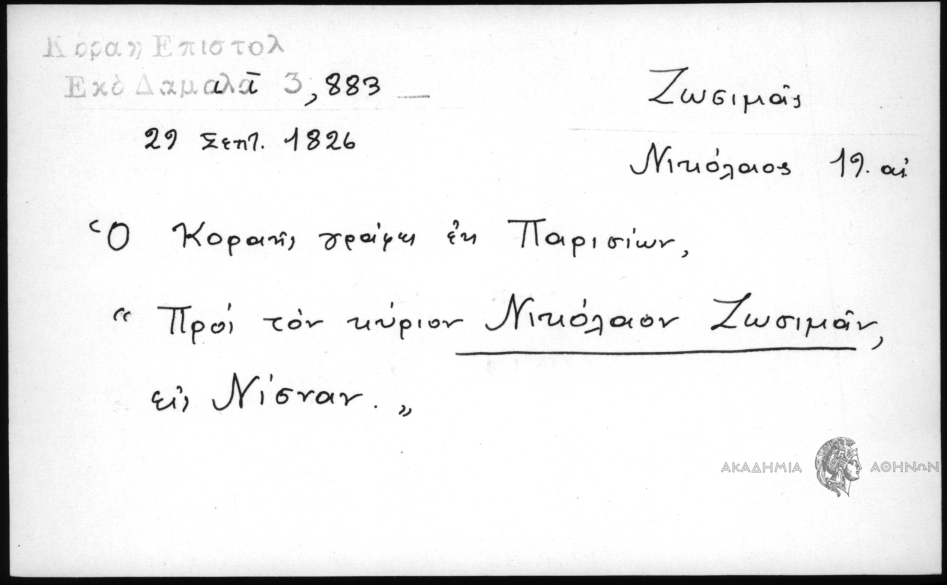 Κοραη Επιστολ
Εκδ Δαμαλᾶ 3,883
29 Σεπτ. 1826
Ζωσιμᾶς
Νικόλαος 19. αἰ
Ὁ Κοραῆς γράφει ἐκ Παρισίων,
“ Πρὸς τὸν κύριον Νικόλαον Ζωσιμᾶν,
εἰς Νίσναν. „
ΑΚΑΔΗΜΙΑ ΑΘΗΝΩΝ